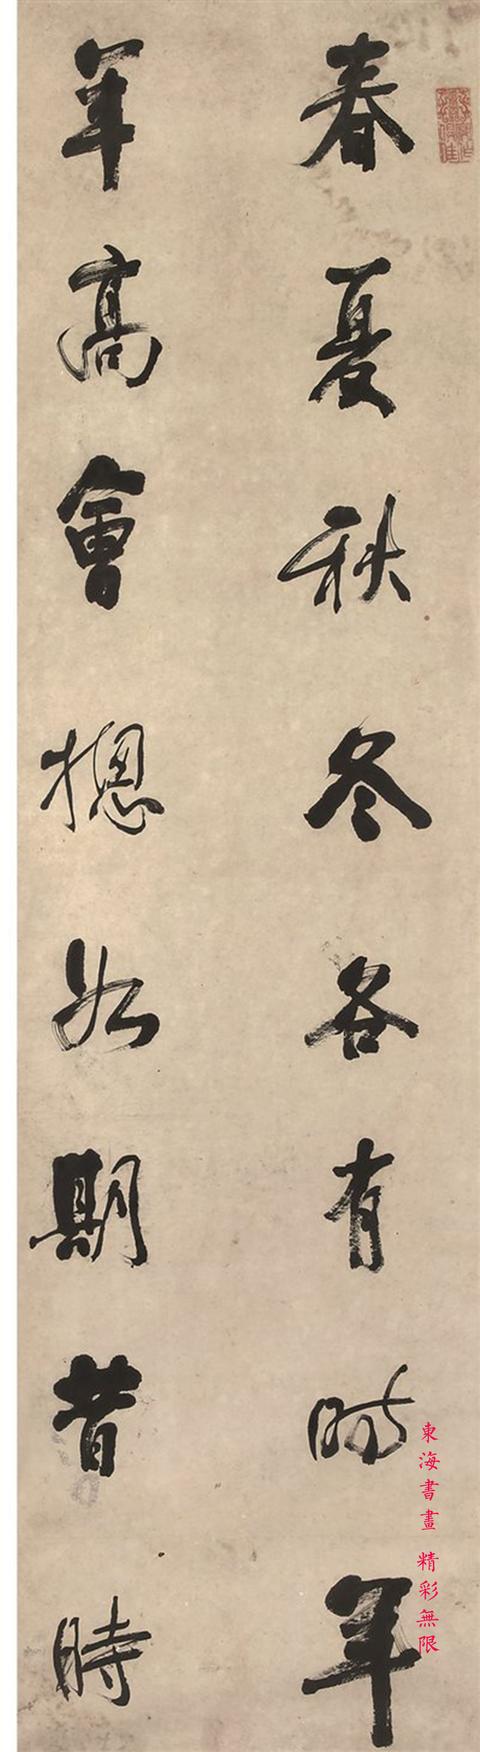 春夏秋冬各有時年
年高會摠如期昔時
東海書畫 精彩無限